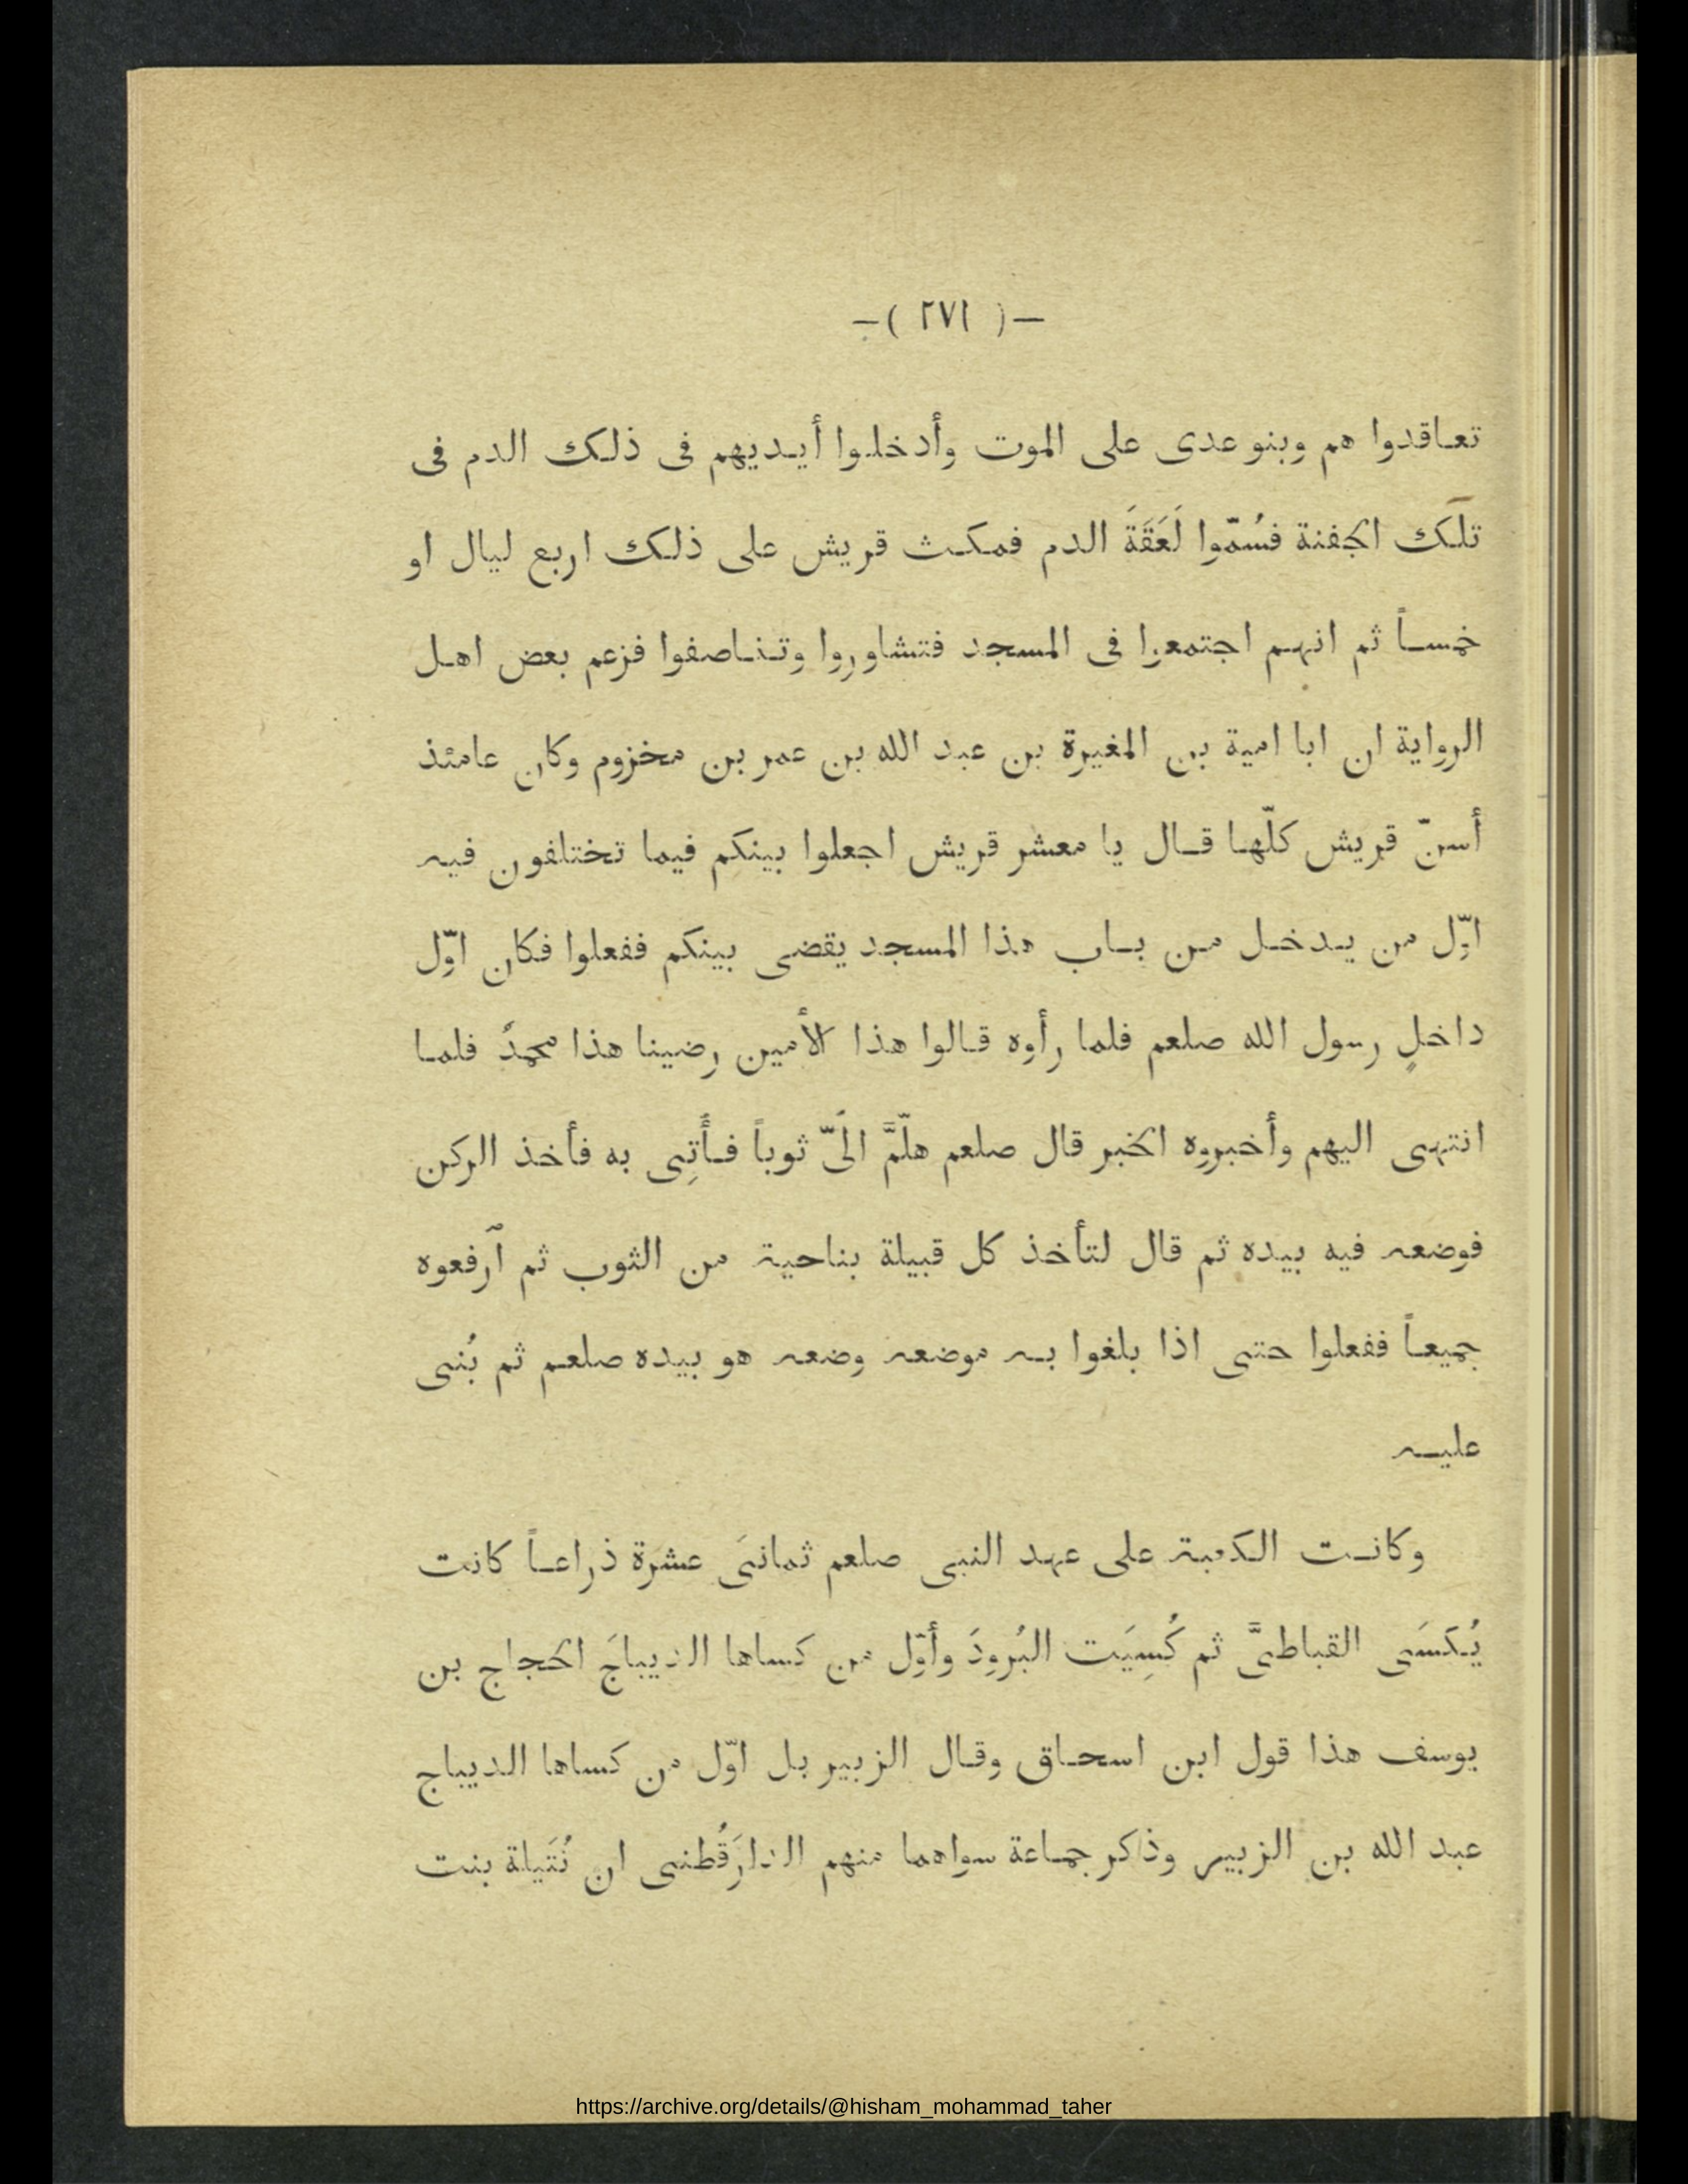 —( ٢٧١ )—
تعاقدوا هم وبنو عدى على الموت وأدخلوا أيديهم فى ذلك الدم فى
تلك الجفنة فسُمّوا لَعَقَةَ الدم فمكث قريش على ذلك اربع ليال او
خمساً ثم انهم اجتمعوا فى المسجد فتشاوروا وتناصفوا فزعم بعض اهل
الرواية ان ابا امية بن المغيرة بن عبد الله بن عمر بن مخزوم وكان عامئذ
أسنّ قريش كلّها قال يا معشر قريش اجعلوا بينكم فيما تختلفون فيه
اوّل من يدخل من باب هذا المسجد يقضى بينكم ففعلوا فكان اوّل
داخلٍ رسول الله صلعم فلما رأوه قالوا هذا الأمين رضينا هذا محمدٌ فلما
انتهى اليهم وأخبروه الخبر قال صلعم هلّمَّ الَىّ ثوباً فأُتِى به فأخذ الركن
فوضعه فيه بيده ثم قال لتأخذ كل قبيلة بناحية من الثوب ثم ٱرفعوه
جميعاً ففعلوا حتى اذا بلغوا به موضعه وضعه هو بيده صلعم ثم بُنى
عليه
وكانت الكعبة على عهد النبى صلعم ثمانىَ عشرَة ذراعاً كانت
يُكسَى القباطىَّ ثم كُسِيَت البُرودَ وأوّل من كساها الديباجَ الحجاج بن
يوسف هذا قول ابن اسحاق وقال الزبير بل اوّل من كساها الديباج
عبد الله بن الزبير وذكر جماعة سواهما منهم الدارَقُطنى ان نُتَيلة بنت
https://archive.org/details/@hisham_mohammad_taher